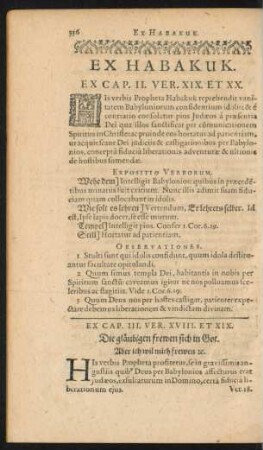 396 EX HABAKUK.
EX HABAKUK.
EX CAP. II. VER. XIX. ET XX.
His verbis Propheta Habakuk reprehendit vanitatem
Babyloniorum confidentium idolis: & è
contrario consolatur pios Judæos à præsentia
Dei qui illos sanctificat per communicationem
Spiritus in Christo: ac proinde eos hortatur ad patientiam,
ut acquiescant Dei judiciis & castigationibus per Babylonios,
concepta fiducia liberationis adventuræ & ultionis
de hostibus sumendæ.
EXPOSITIO VERBORUM.
Wehe dem] Intelligit Babylonios: quibus in præcedentibus
minatus fuit exitium. Nunc illis adimit suam fiduciam
quam collocabant in idolis.
Wie solt es lehren] Vertendum, Er lehre es selber. Id
est, Ipse lapis docet, se esse mutum.
Tempel] Intelligit pios. Confer 1 Cor. 6.19.
Still] Hortatur ad patientiam.
OBSERVATIONES.
1 Stulti sunt qui idolis confidunt, quum idola destituantur
facultate opitulandi.
2 Quum simus templa Dei, habitantis in nobis per
Spiritum sanctum: caveamus igitur ne nos polluamus sceleribus
ac flagitiis. Vide 1 Cor. 6.19.
3 Quum Deus nos per hostes castigat, patienter expectare
debemus liberationem & vindictam divinam.
EX CAP. III. VER. XVIII. ET XIX.
Die gläubigen frewen sich in Got.
Aber ich wil mich frewen ꝛc.
His verbis Propheta profitetur, se in gravissimis angustiis
quib9 Deus per Babylonios affecturus erat
Judæos, exsultaturum in Domino, certa fiducia
liberationum ejus. Ver. 18.